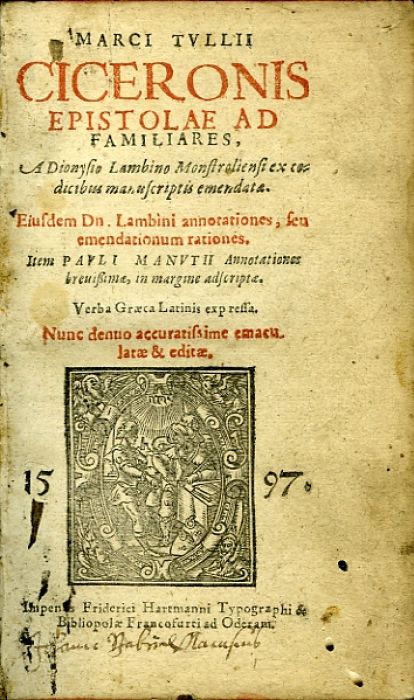 MARCI TVLLII
CICERONIS
EPISTOLAE AD
FAMILIARES,
A Dionysio Lambino Monstroliensi ex co-
dicibus manuscriptis emendatæ.
Eiusdem Dn. Lambini annotationes, seu
emendationum rationes.
Item PAVLI MANVTII Annotationes
breuißimæ, in margine adscriptæ.
Verba Græca Latinis expressa.
Nunc denuo accuratissime emacu-
latæ & editæ.
15 97.
Impensis Friderici Hartmanni Typographi &
Bibliopolæ Francofurti ad Oderam.